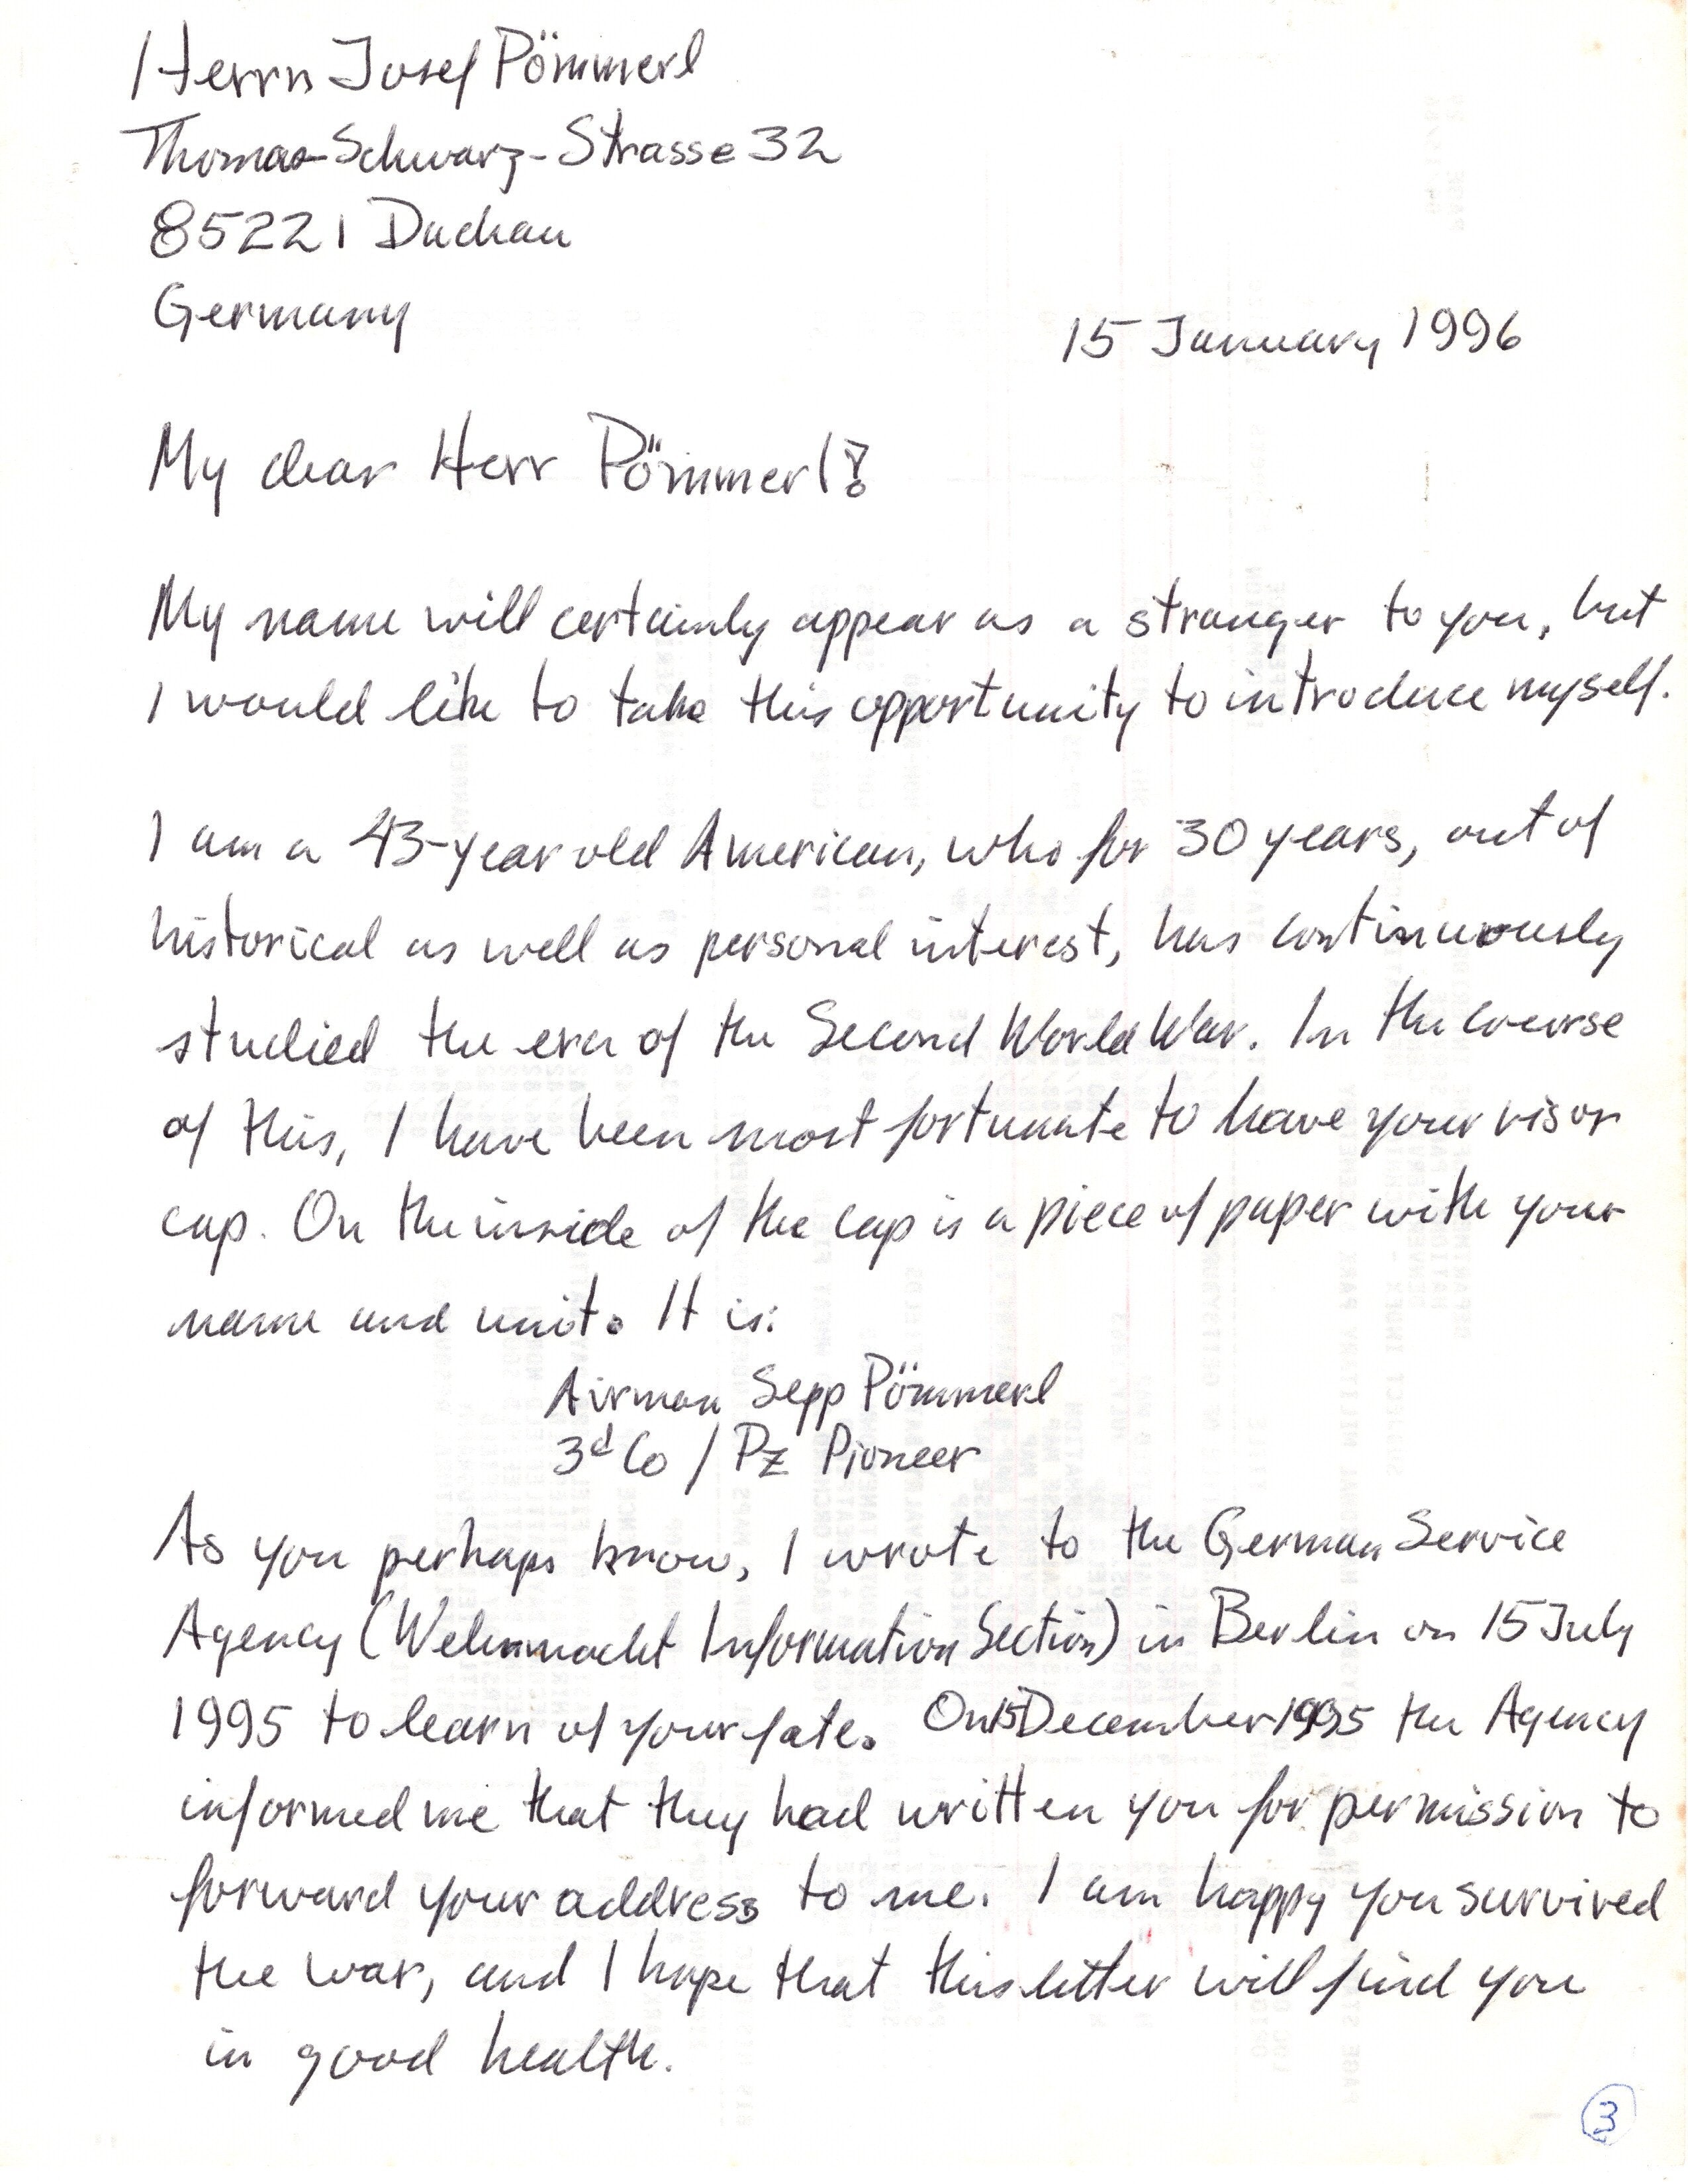 Herrn Josef Pömmerl
Thomas-Schwarz-Strasse 32
85221 Dachau
Germany
15 January 1996
My dear Herr Pömmerl!
My name will certainly appear as a stranger to you, but
I would like to take this opportunity to introduce myself.
I am a 43-year old American, who for 30 years, out of
historical as well as personal interest, has continuously
studied the era of the Second World War. In the course
of this, I have been most fortunate to have your visor
cap. On the inside of the cap is a piece of paper with your
name and unit. It is:
Airman Sepp Pömmerl
3d Co / Pz Pioneer
As you perhaps know, I wrote to the German Service
Agency (Wehrmacht Information Section) in Berlin on 15 July
1995 to learn of your fate. On 15 December 1995 the Agency
informed me that they had written you for permission to
forward your address to me. I am happy you survived
the war, and I hope that this letter will find you
in good health.
3